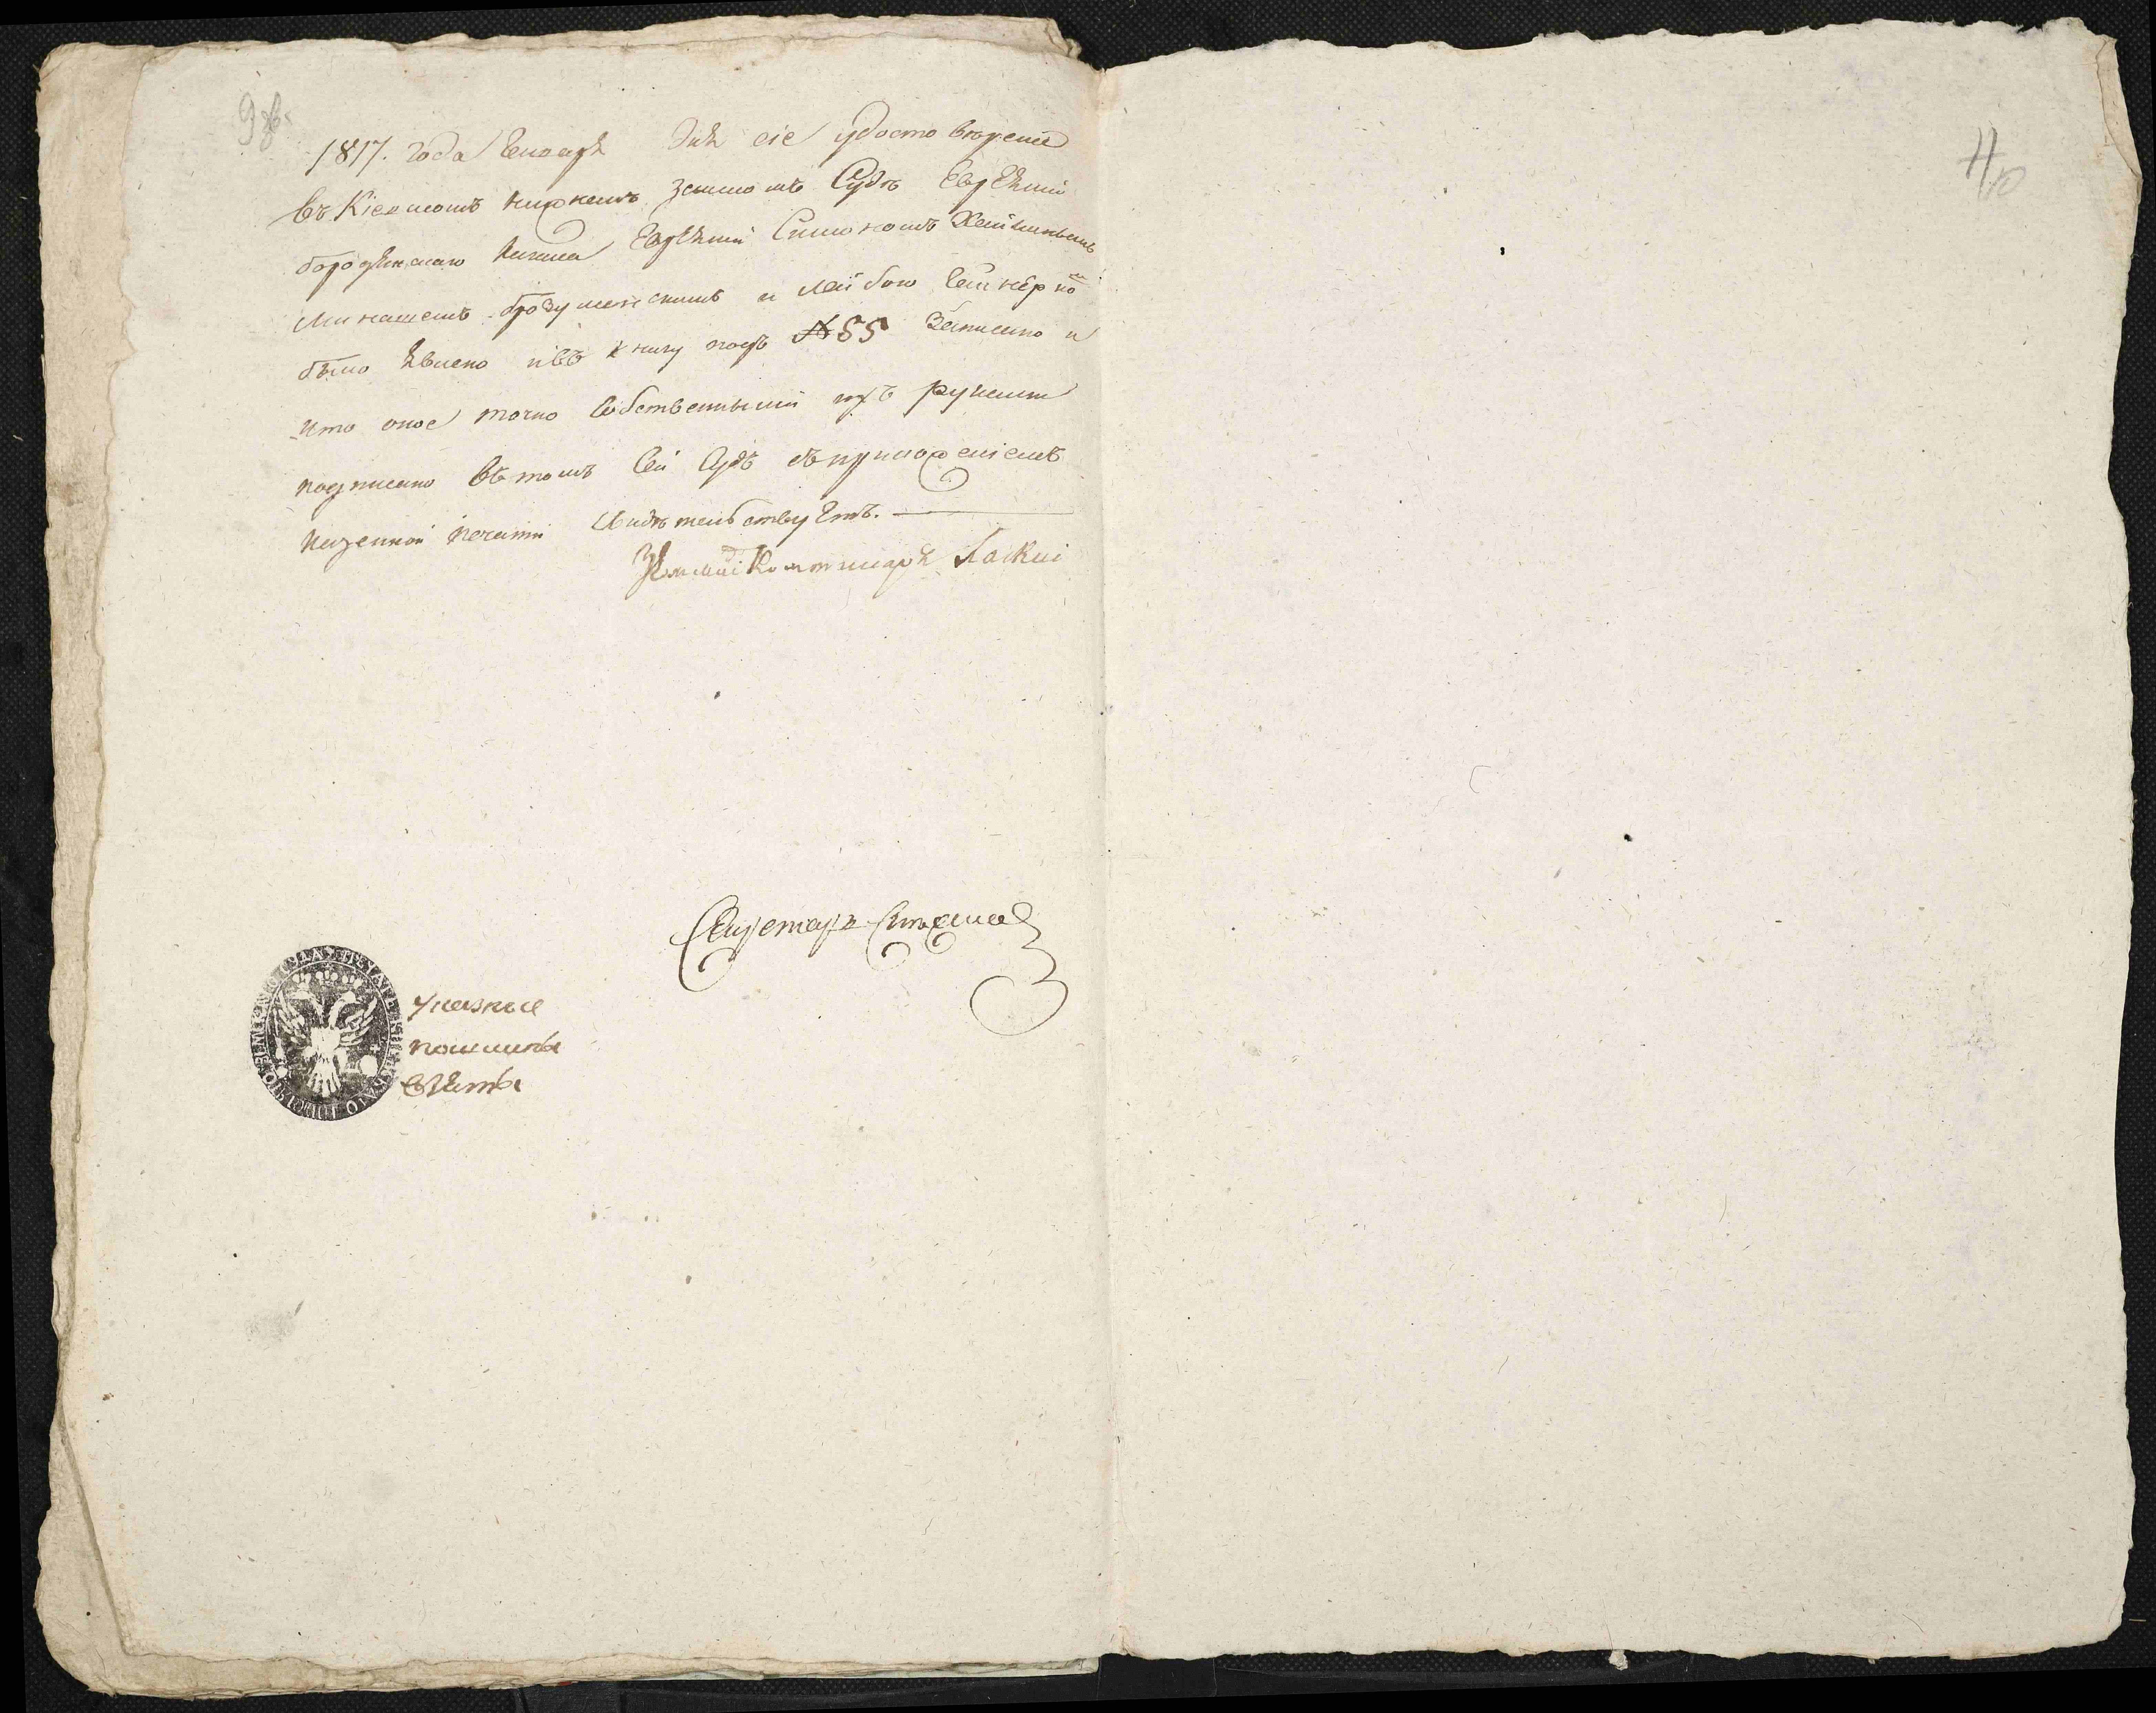 9 об.
1817. года Генваря дня сіе удостовѣреніе
въ Кіевскомъ нижнемъ земскомъ Судѣ Евреями
бородянскаго кагала Евреями Симономъ
и Лейбою
было явлено и въ книгу подъ № 55 записано и
что оное точно собственными ихъ руками
подписано въ томъ сей Судъ съ приложеніемъ
казенной печати свидѣтельствуетъ.
Земскій Коммисаръ
Секретарь
Указные
пошлины
взяты
10